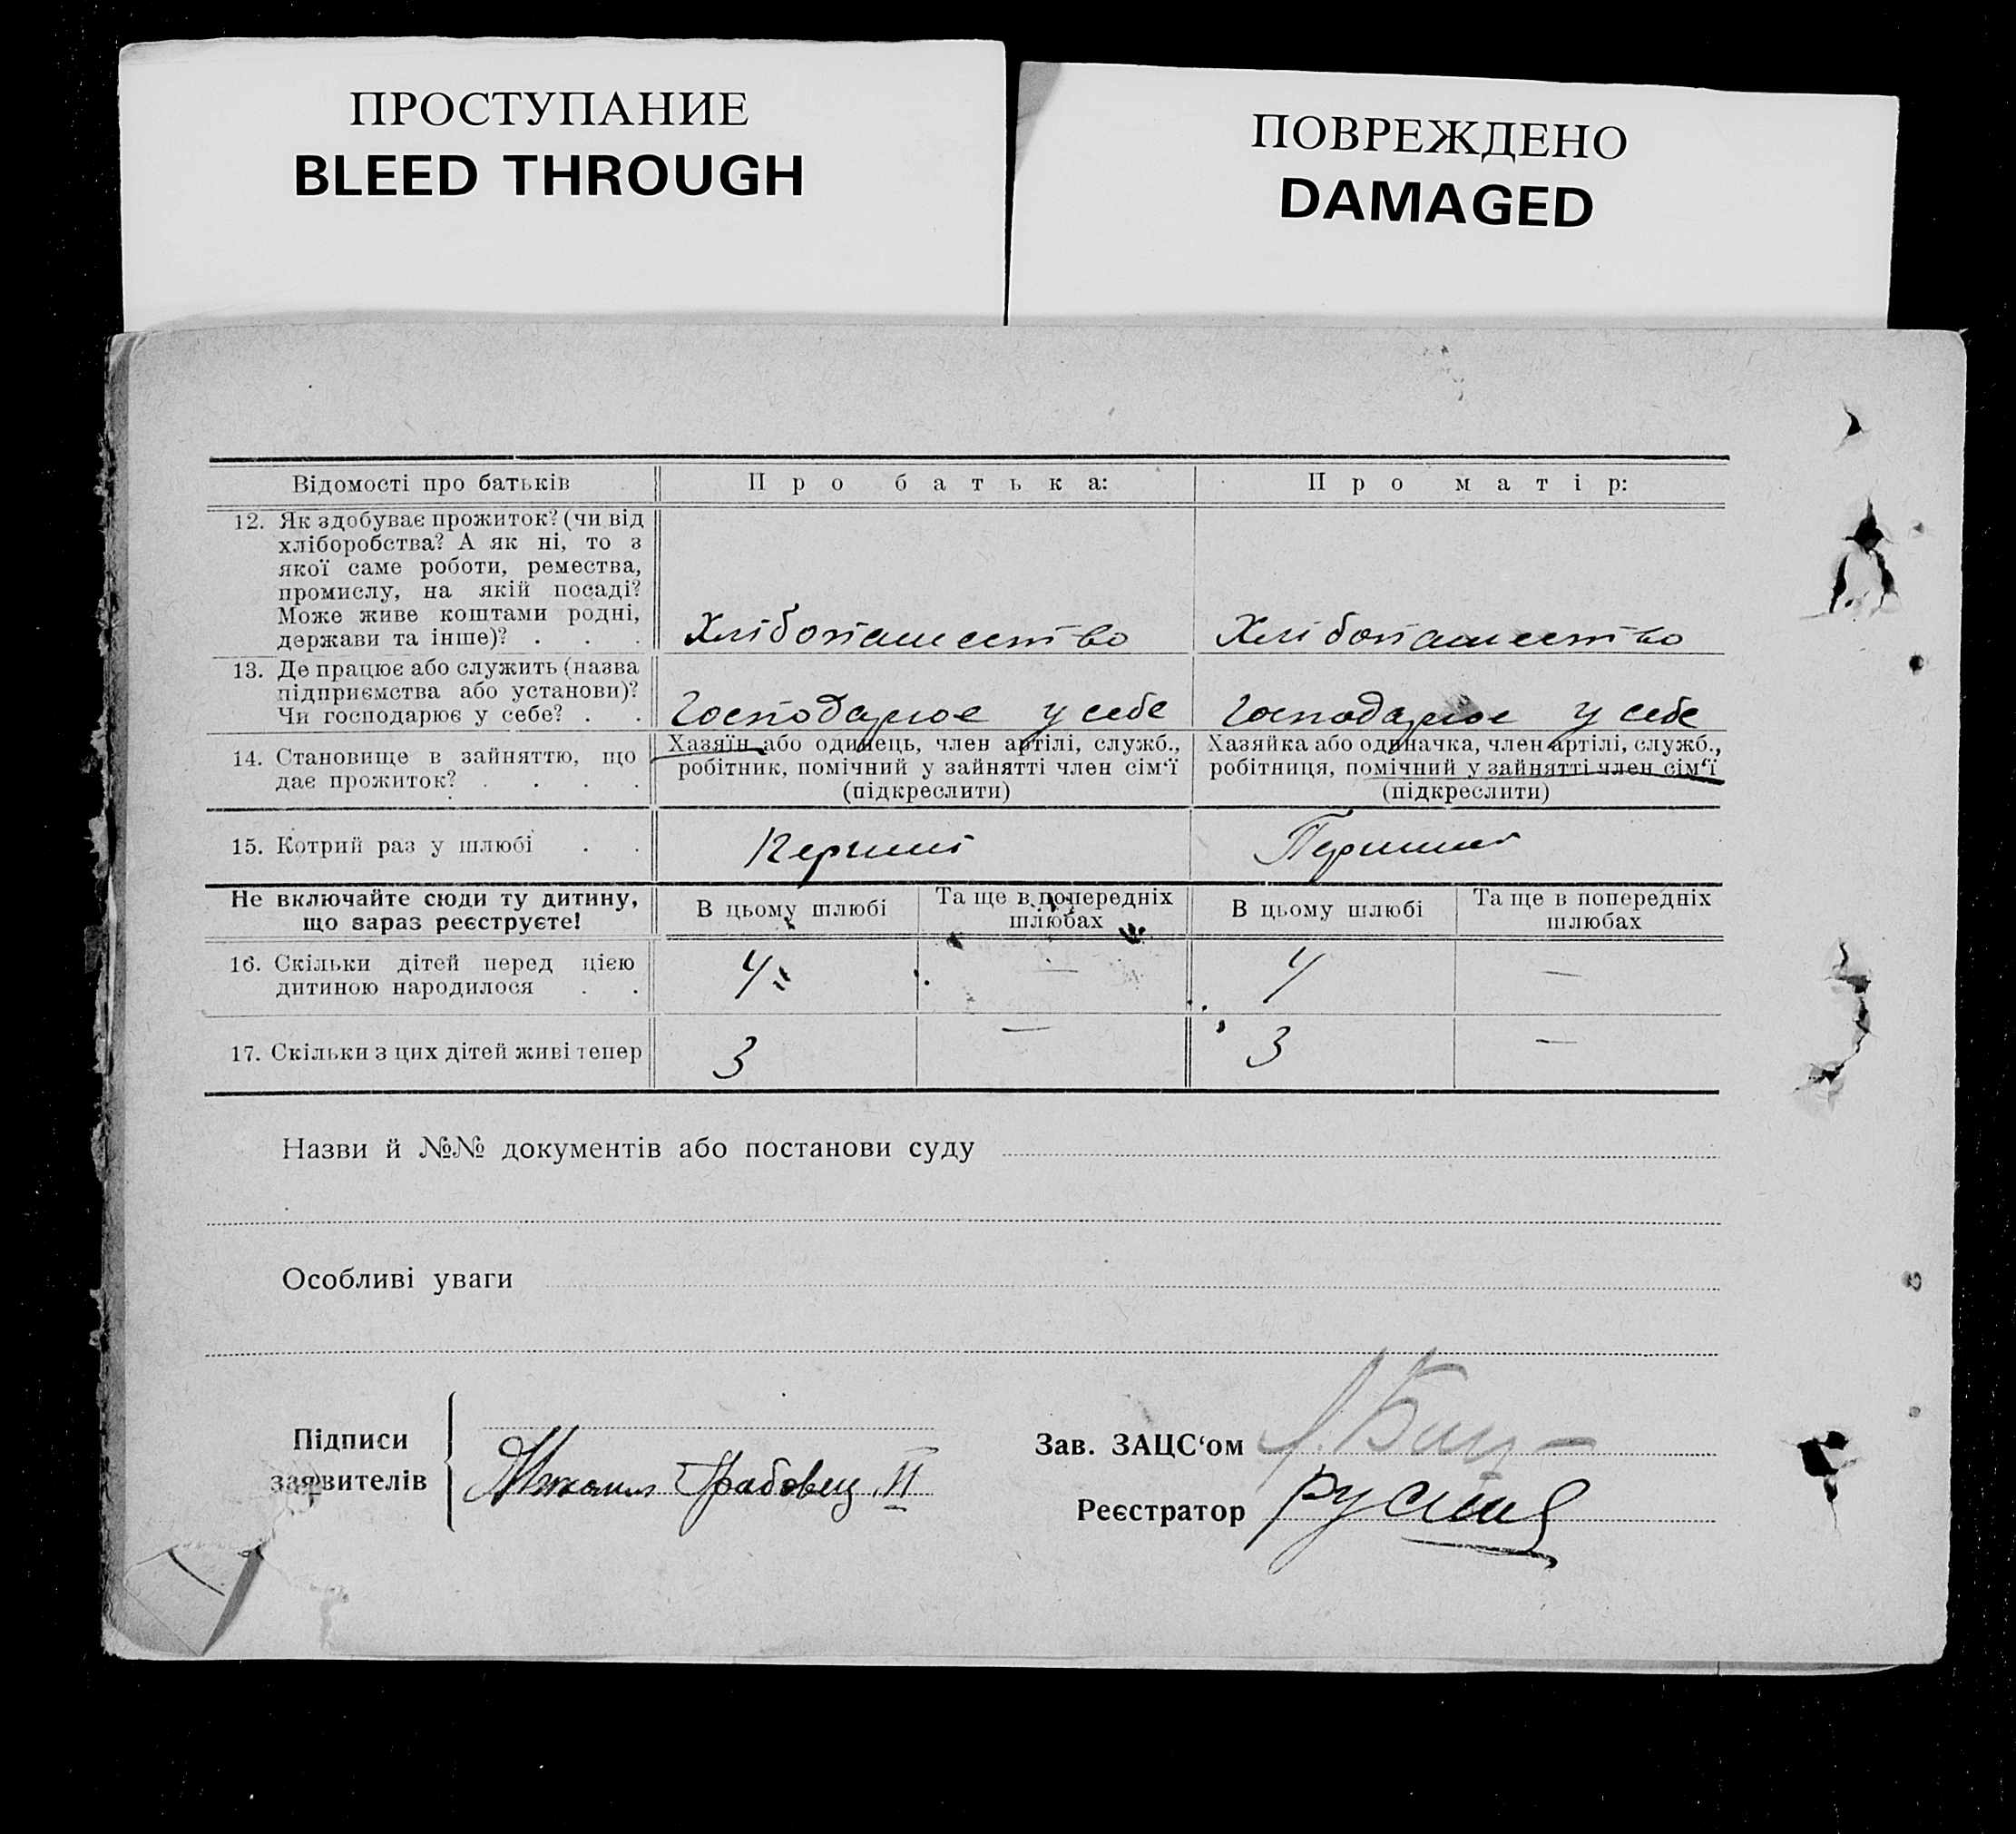 ПРОСТУПАНИЕ
BLEED THROUGH
ПОВРЕЖДЕНО
DAMAGED
Відомості про батьків
Про батька:
Про матір:
12. Як здобуває прожиток? (чи від
хліборобства? А як ні, то з
якої саме роботи, ремества,
промислу, на якій посаді?
Може живе коштами родні,
держави та інше)? . . .
Хлібопашество
Хлібопашество
13. Де працює або служить (назва
підприємства або установи)?
Чи господарює у себе? . .
Господарює у себе
Господарює у себе
14. Становище в зайняттю, що
дає прожиток? . . . .
Хазяїн або одинець, член артілі, служб.,
робітник, помічний у зайнятті член сім‘ї
(підкреслити)
Хазяйка або одиначка, член артілі, служб.,
робітниця, помічний у зайнятті член сім‘ї
(підкреслити)
15. Котрий раз у шлюбі . .
Перший
Перший
Не включайте сюди ту дитину,
що зараз реєструєте!
В цьому шлюбі
Та ще в попередніх
шлюбах
В цьому шлюбі
Та ще в попередніх
шлюбах
16. Скільки дітей перед цією
дитиною народилося . .
4
—
4
—
17. Скільки з цих дітей живі тепер
3
—
3
—
Назви й №№ документів або постанови суду
Особливі уваги
Підписи
заявителів
Михаил Грабовец II
Зав. ЗАЦС‘ом
Реєстратор